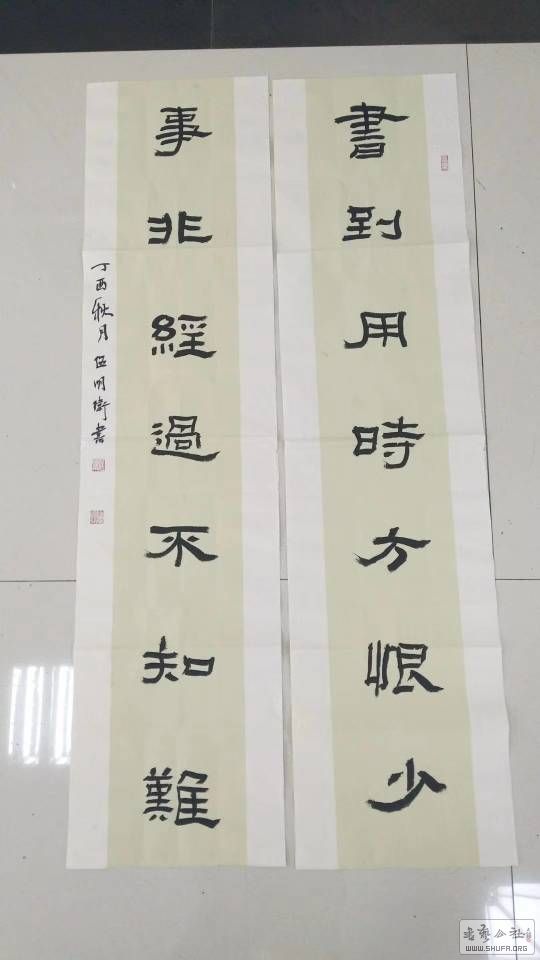 書到用時方恨少
事非經過不知難
丁酉秋月伍明衛書
書藝公社
WWW.SHUFA.ORG